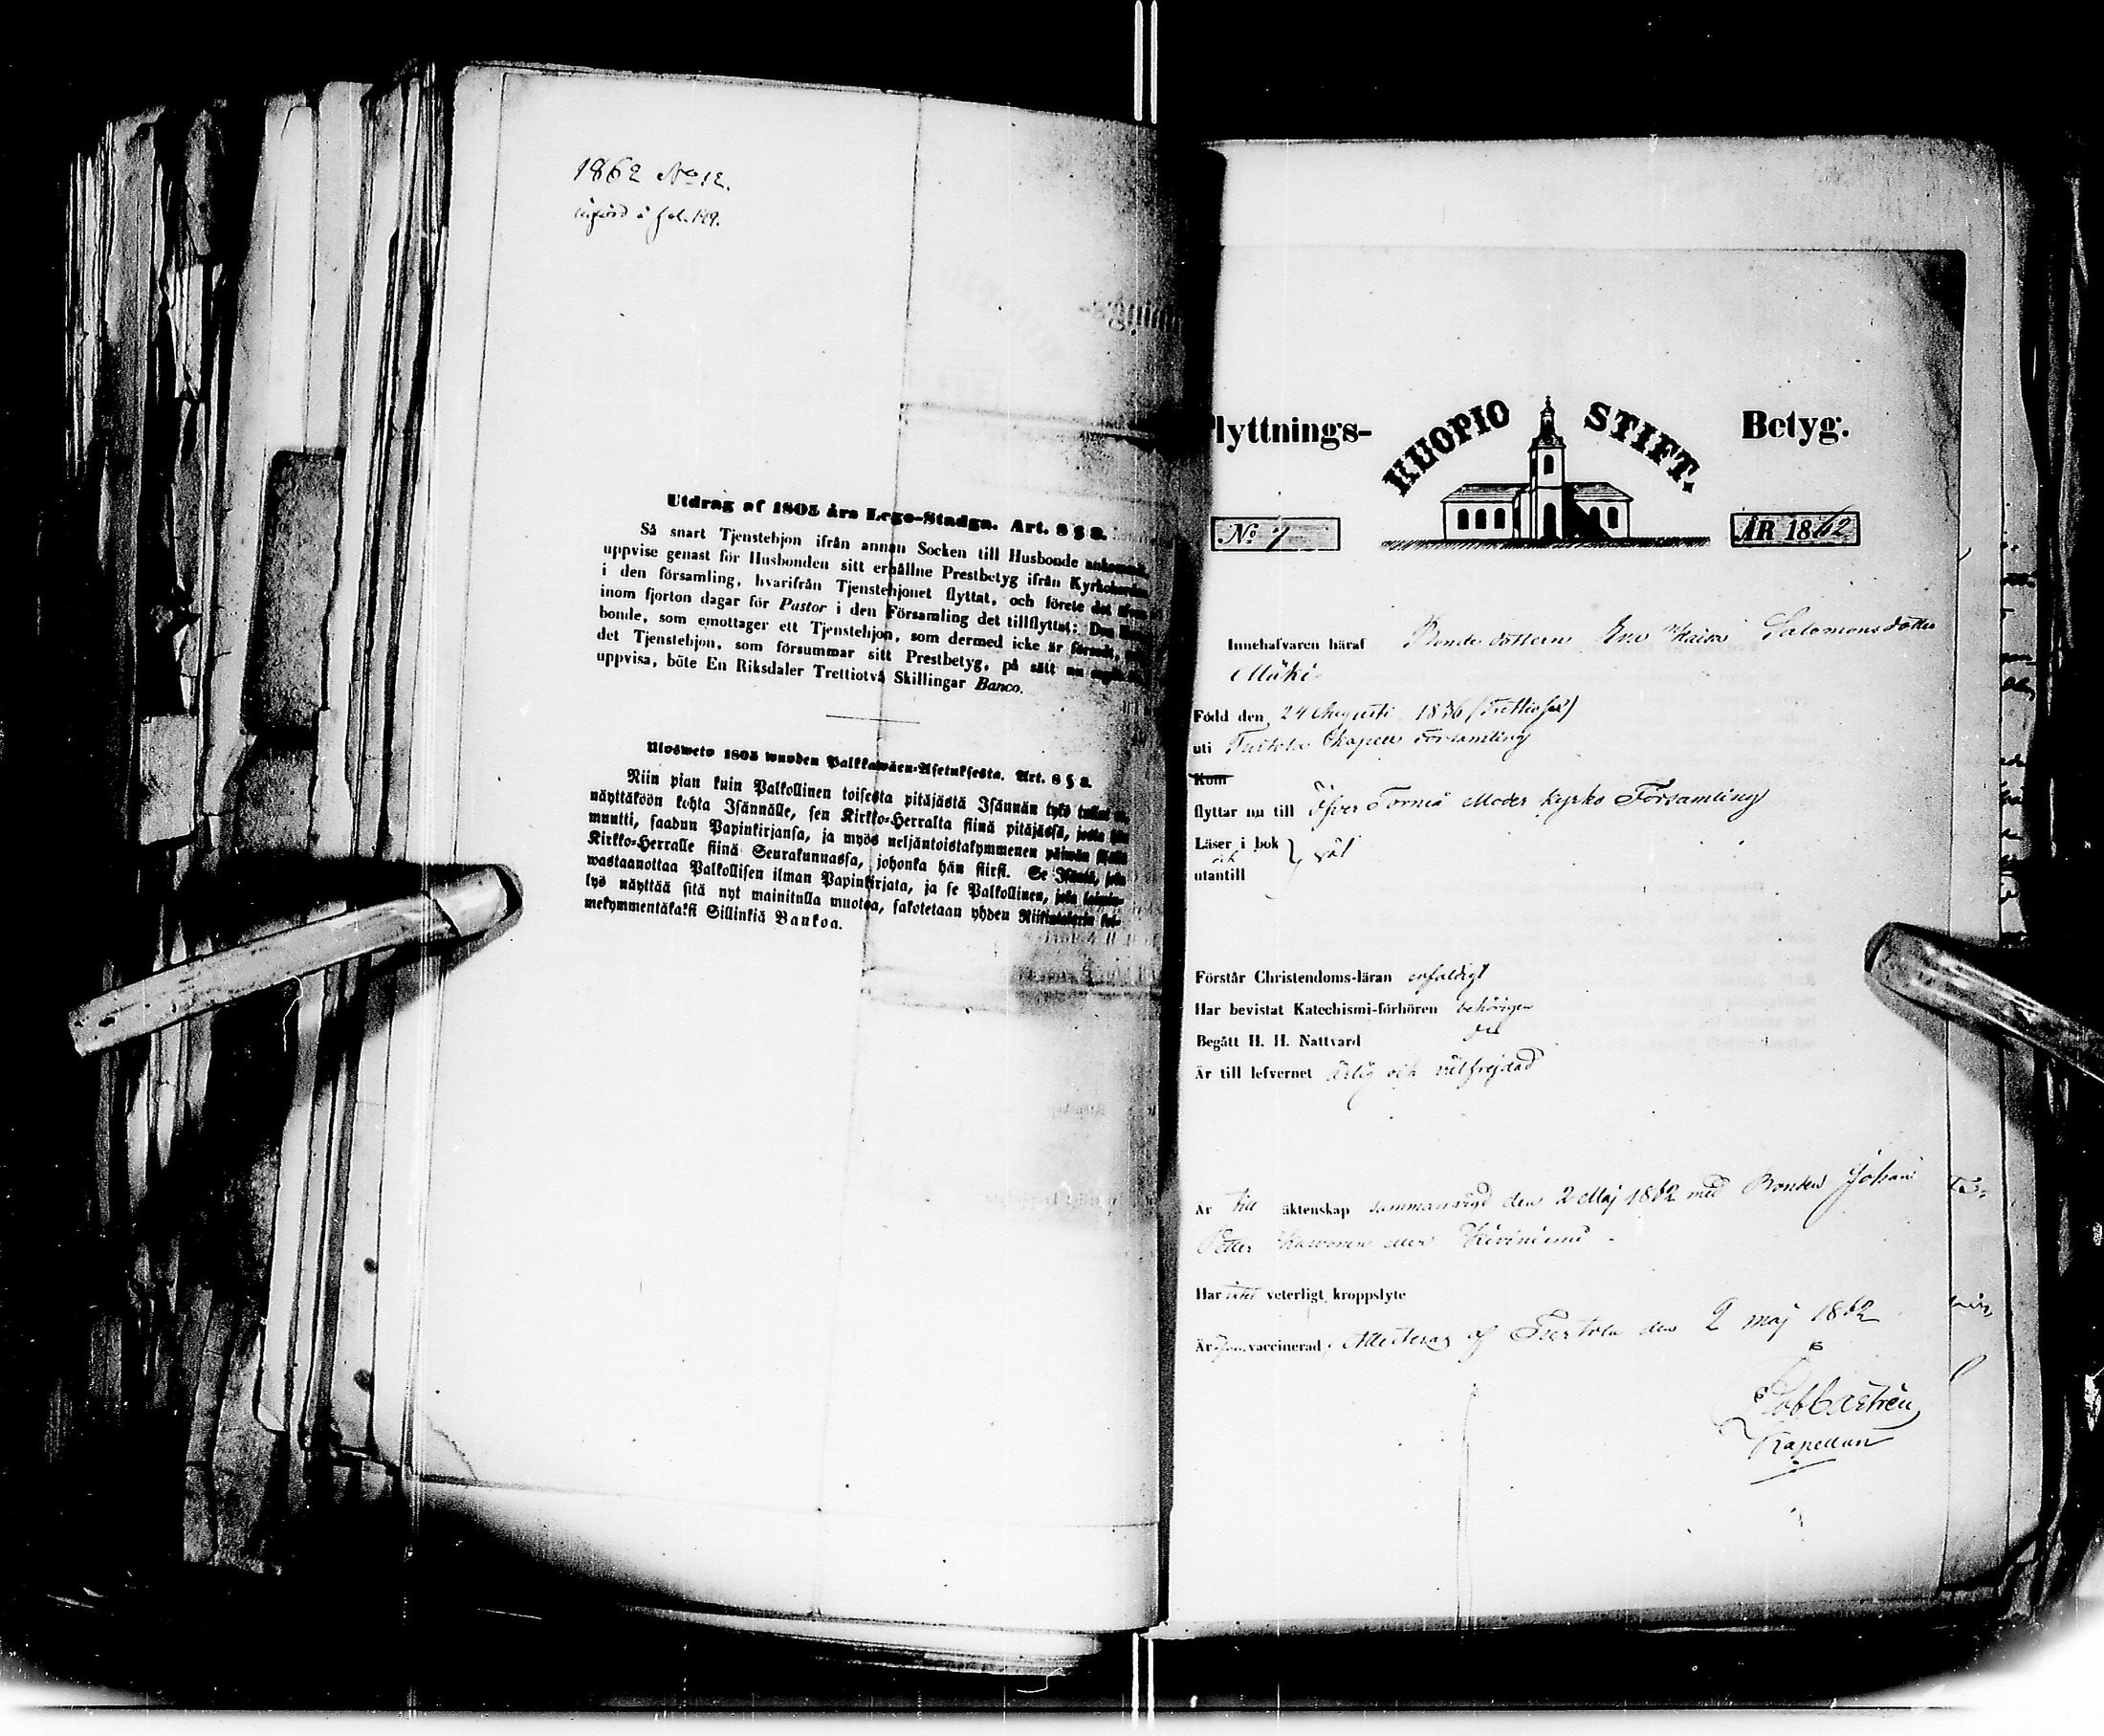 1862 No 12.
införd å fol. 129.
Utdrag af 1805 års Lego-Stadga. Art. 8 § 2.
Så snart Tjenstehjon ifrån annan Socken till Husbonde ankommit,
uppvise genast för Husbonden sitt erhållne Prestbetyg ifrån Kyrkoherden
i den församling, hvarifrån Tjenstehjonet flyttat, och förete det
inom fjorton dagar för Pastor i den Församling det tillflyttat: Den
bonde, som emottager ett Tjenstehjon, som dermed icke är försedt,
det Tjenstehjon, som försummar sitt Prestbetyg, på sätt nu
uppvisa, böte En Riksdaler Trettiotvå Skillingar Banco.
Ulosweto 1805 wuoden Palkkawäen-Asetuksesta. Art. 8 § 2.
Niin pian kuin Palkollinen toisesta pitäjästä Isännän tykö tullut
näyttäköön kohta Isännälle, sen Kirkko-Herralta siinä pitäjässä, josta
muutti, saadun Papinkirjansa, ja myös neljäntoistakymmenen päiwän
Kirkko-Herralle siinä Seurakunnassa, johonka hän siirsi. Se Isäntä, joka
wastaanottaa Palkollisen ilman Papinkirjata, ja se Palkollinen, joka laimin-
lyö näyttää sitä nyt mainitulla muotoa, sakotetaan yhden Riikintalarin kol-
mekymmentäkaksi Sillinkiä Bankoa.
lyttnings- KUOPIO STIFT. Betyg.
No 7 ÅR 1862
Innehafvaren häraf Bonde dottern Eva Kaisa Salomonsdotter
Mäki
Född den 24 Augusti 1836 (Trettiosex)
uti Turtola Capell Församling
Kom
flyttar nu till Öfver Torneå Moder kyrko Församling
Läser i bok
och
utantill
Förstår Christendoms-läran enfaldigt
Har bevistat Katechismi-förhören behörigen
Begått H. H. Nattvard
Är till lefvernet ärlig och välfrejdad
Är till äktenskap sammanvigd den 2 Maj 1862 med Bonden Johan
Petter eller Kiviniemi.
Har intet veterligt kroppslyte
Är vaccinerad, Attesteras af Turtola den 2 maj 1862
Castrén
Kapellan